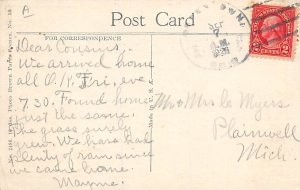 A
Post Card
FOR CORRESPONDENCE
SEP
7
Dear Cousins:
We arrived home
all O.K. Fri. eve
7.30. Found home
just the same.
The grass surely
grew. We have had
plenty of rain since
we came home.
Mayme.
Mr & Mrs L. Myers
Plainwell
Mich.
2 CENTS 2